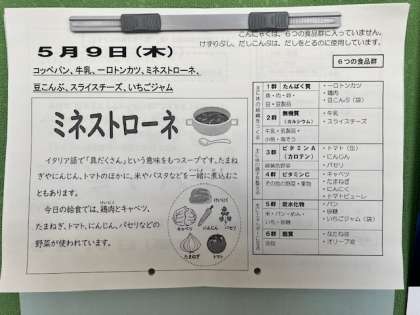 こんにゃくは、6つの食品群に入っていません。
けずりぶし、だしこんぶは、だしをとるのに使用しています。
5月9日(木)
コッペパン、牛乳、一口トンカツ、ミネストローネ、
豆こんぶ、スライスチーズ、いちごジャム
6つの食品群
ミネストローネ
イタリア語で「具だくさん」という意味をもつスープです。たまね
ぎやにんじん、トマトのほかに、米やパスタなどを一緒に煮込むこ
ともあります。
今日の給食では、鶏肉とキャベツ、
たまねぎ、トマト、にんじん、パセリなどの
野菜が使われています。
キャベツ
にんじん
パセリ
たまねぎ
トマト
1群 たんぱく質
魚・肉・卵・
豆・豆製品
・一口トンカツ
・鶏肉
・豆こんぶ(袋)
2群 無機質
(カルシウム)
牛乳・乳製品・
小魚・海そう
・牛乳
・スライスチーズ
3群 ビタミンA
(カロテン)
緑黄色野菜
・トマト(缶)
・にんじん
・パセリ
4群 ビタミンC
その他の野菜・果物
・キャベツ
・たまねぎ
・にんにく
・トマトピューレ
5群 炭水化物
米・パン・めん・
いも・砂糖
・パン
・砂糖
・いちごジャム(袋)
6群 脂質
油脂
・なたね油
・オリーブ油